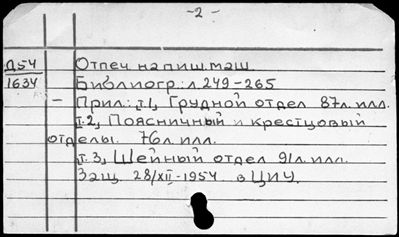 -2-
Д54 Отпеч. на пиш. маш.
1634 Библиогр.: л. 249-265
- Прил.: т.1, Грудной отдел 87 л. илл.
т.2, Поясничный и крестцовый
отделы. 76 л. илл.
т.3, Шейный отдел 91 л. илл.
Защ. 28/XII-1954 в ЦИУ.